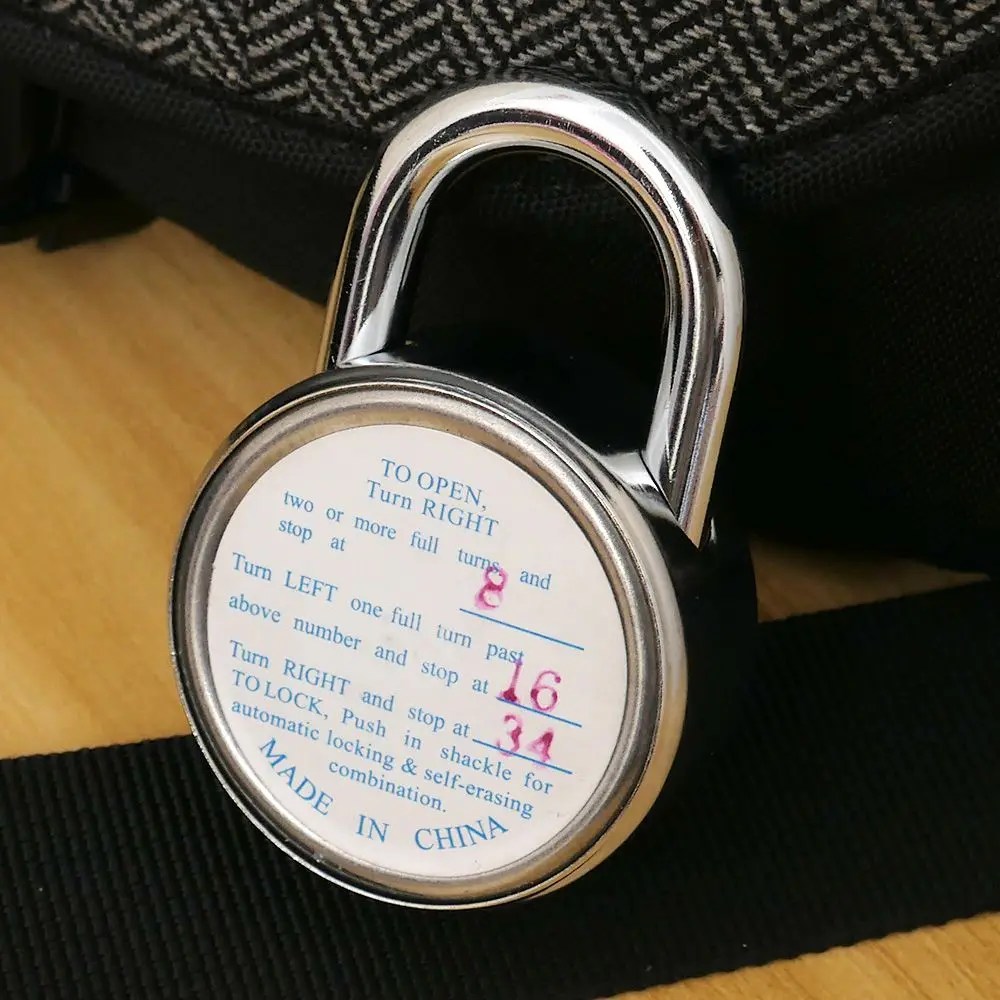 TO OPEN,
Turn RIGHT
two or more full turns, and
stop at 8
Turn LEFT one full turn past
above number and stop at 16
Turn RIGHT and stop at 34
TO LOCK, Push in shackle for
automatic locking & self-erasing
combination.
MADE IN CHINA